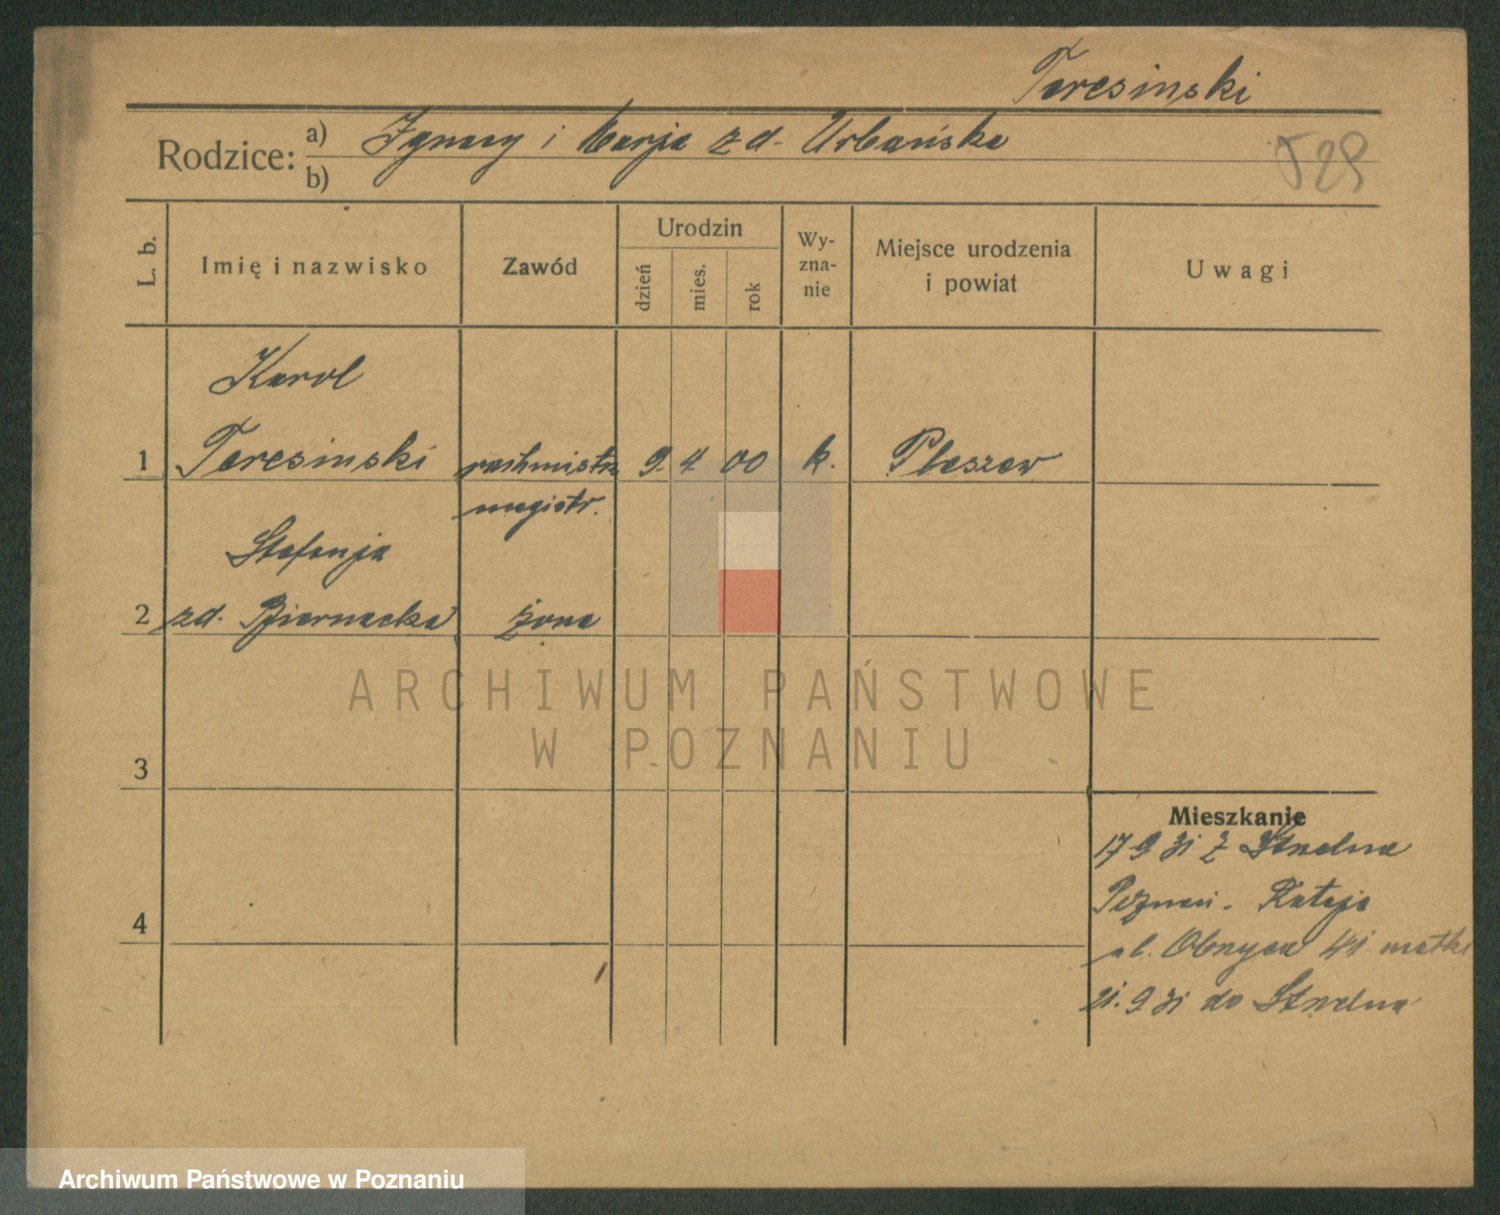 Teresinski
Rodzice: a) Ignacy i Marja zd. Urbańska
b)
L. b.
Imię i nazwisko
Zawód
Urodzin
dzień
mies.
rok
Wy-
zna-
nie
Miejsce urodzenia
i powiat
Uwagi
Karol
1 Teresinski rachmistrz 9. 4. 00 k. Pleszew
magistr.
Stefanja
2 zd. Biernacka żona
ARCHIWUM PAŃSTWOWE
W POZNANIU
3
Mieszkanie
17 9 31 z Strzelna
Poznań. Rataje
4
ul. Obrzyca 41 matki
21. 9 31 do Strzelna
Archiwum Państwowe w Poznaniu